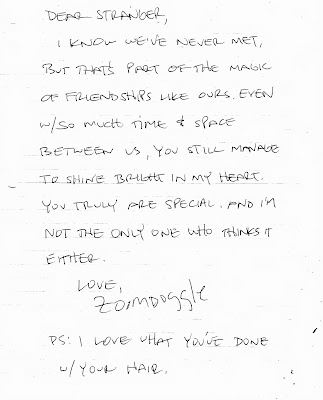 DEAR STRANGER,
I KNOW WE'VE NEVER MET,
BUT THAT'S PART OF THE MAGIC
OF FRIENDSHIPS LIKE OURS. EVEN
W/SO MUCH TIME & SPACE
BETWEEN US, YOU STILL MANAGE
TO SHINE BRIGHT IN MY HEART.
YOU TRULY ARE SPECIAL. AND I'M
NOT THE ONLY ONE WHO THINKS IT
EITHER.
LOVE,
ZOOMDOGGLE
PS: I LOVE WHAT YOU'VE DONE
W/ YOUR HAIR.